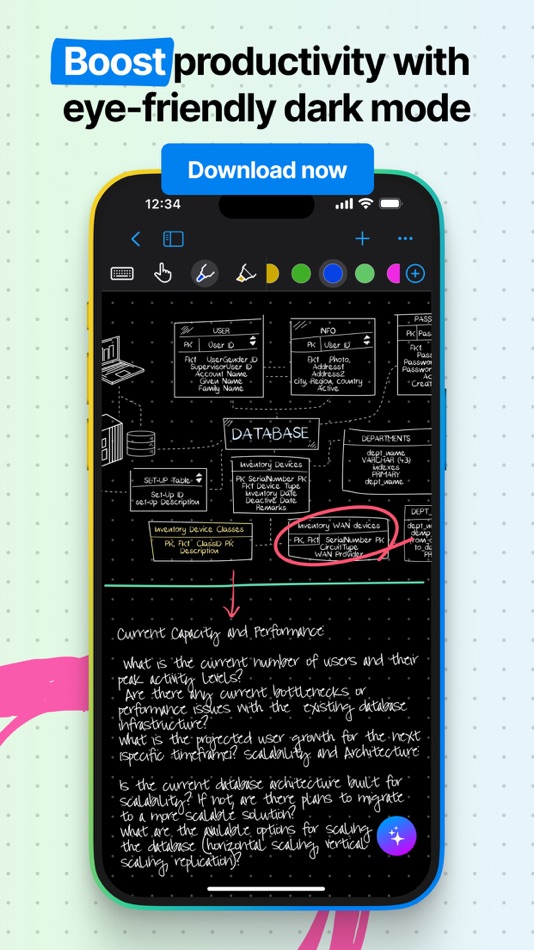 Boost productivity with
eye-friendly dark mode
Download now
12:34
USER
PK User ID
FK1 UserGender ID
SupervisorUser ID
Account Name
Given Name
Family Name
INFO
PK User ID
FK1 Photo,
Address1
Address2
city, Region, country
Active
PASS
PK Pass
FK1
Pass
Password
Password
Ac
Creat
DATABASE
DEPARTMENTS
dept_name
VARCHAR (43)
indexes
PRIMARY
dept_name
SET-UP Table
Set-Up ID
set-up Description
Inventory Devices
PK SerialNumber PK
FK1 Device Type
Inventory Date
Deactive Date
Remarks
Inventory Device Classes
PK, FK1 ClassID PK
Description
Inventory WAN devices
PK, FK1 SerialNumber PK
CircuitType
WAN Provider
DEPT_
dept_
from_d
to_da
Current Capacity and Performance
What is the current number of users and their
peak activity levels?
Are there any current bottlenecks or
performance issues with the existing database
infrastructure?
What is the projected user growth for the next
specific timeframe? Scalability and Architecture
Is the current database architecture built for
scalability? If not, are there plans to migrate
to a more scalable solution?
What are the available options for scaling
the database (horizontal scaling, vertical
scaling, replication)?